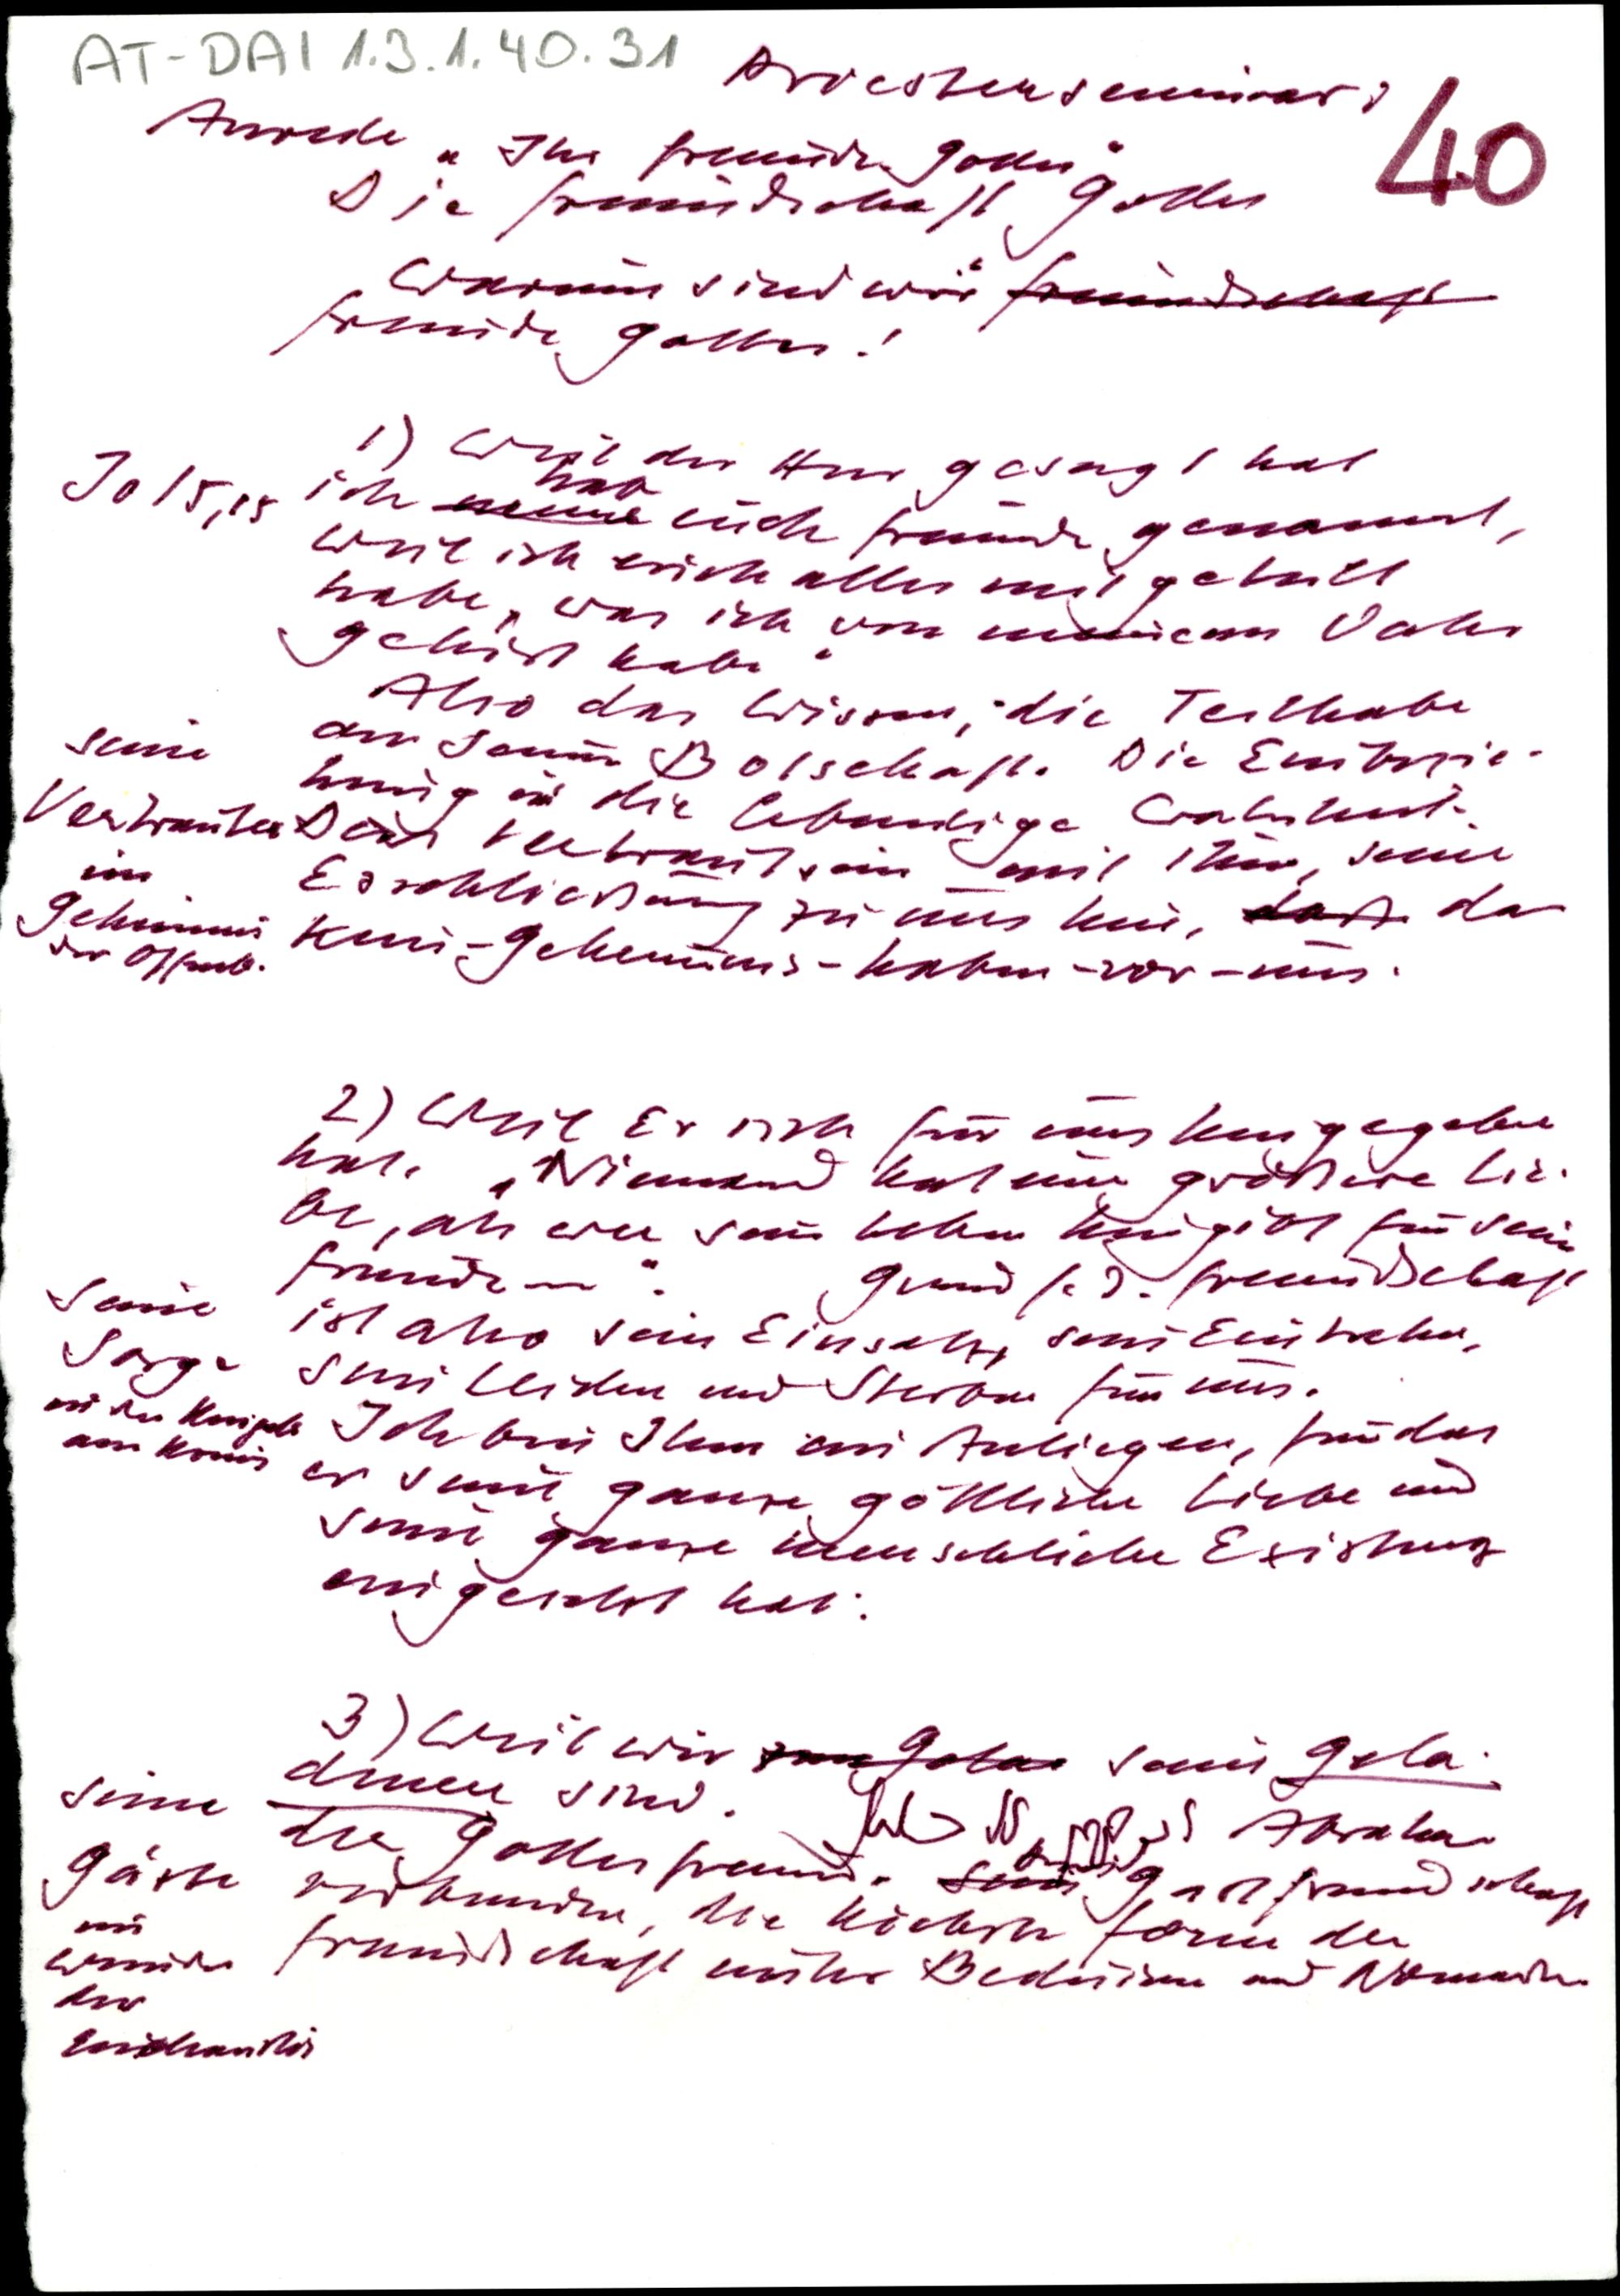 AT-DAI 1.3.1.40.31
Priesterseminar:
40
Anrede „Ihr Freunde Gottes"
Die Freundschaft Gottes
Warum sind wir Freundschaft
Freunde Gottes!
1) Weil der Herr gesagt hat
Jo 15,15
ich nenne hab euch Freunde genannt,
weil ich euch alles mitgeteilt
habe, was ich von meinem Vater
gehört habe"
Also das Wissen, die Teilhabe
an seiner Botschaft. Die Einbezie-
hung in die lebendige Wahrheit.
Das Vertrautsein mit Ihm, seine
Erschließung zu uns hin, dass das
Kein-Geheimnis-haben-vor-uns.
seine
Vertrauten
im
Geheimnis
der Offenb.
2) Weil Er sich für uns hingegeben
hat. „Niemand hat eine größere Lie-
be, als wer sein Leben hingibt für seine
Freunde". Grund f. d. Freundschaft
ist also sein Einsatz, sein Eintreten,
sein Leiden und Sterben für uns.
Ich bin Ihm ein Anliegen, für das
er seine ganze göttliche Liebe und
seine ganze menschliche Existenz
eingesetzt hat.
seine
Sorge
in der Hingabe
am Kreuz
3) Weil wir seine Gela-
denen sind. Abraham
der Gottesfreund. Gastfreundschaft
verbunden, die höchste Form der
Freundschaft unter Beduinen und Nomaden
seine
Gäste
im
Wunder
der
Eucharistie